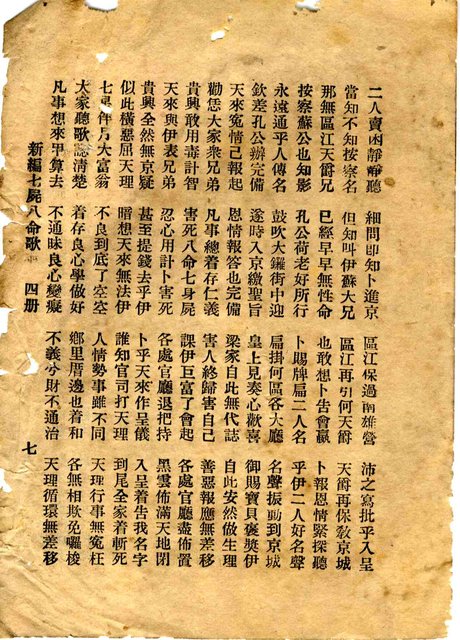 二人賣凶靜靜聽　細問即知卜進京　區江保過南雄營　沛之寫批乎入呈
當知不知按察名　但知叫伊蘇大兄　區江再引何天爵　天爵再保敎京城
那無區江天爵兄　已經早早無性命　也敢想卜告會贏　卜報恩情緊探聽
按察蘇公也知影　孔公荷老好所行　卜賜牌扁二人名　乎伊二人好名聲
永遠通乎人傳名　鼓吹大鑼街中迎　扁掛何區各大廳　名聲振動到京城
欽差孔公辦完備　遂時入京繳聖旨　皇上見奏心歡喜　御賜寶貝褒獎伊
天來冤情己報起　恩情報答也完備　梁家自此無代誌　自此安然做生理
勸恁大家衆兄弟　凡事總着存仁義　害人終歸害自己　善惡報應無差移
貴興敢用毒計智　害死八命七身屍　謀伊巨富了會起　各處官廳盡佈置
天來與伊表兄弟　忍心用計卜害死　各處官廳退把持　黑雲佈滿天地閉
貴興全然無京疑　甚至提錢去乎伊　卜乎天來作呈儀　入呈着告我名字
似此橫惡屈天理　暗想天來無法伊　誰知官司打天理　到尾全家着斬死
七兩月大富翁　不良到底了空空　人情勢事雖不同　天理行事無冤枉
大家聽歌聽清楚　着存良心學做好　鄉里厝邊也着和　各無相欺免囉梭
凡事想來早算去　不通昧良心變癡　不義兮財不通治　天理循環無差移
新編七屍八命歌　四册　七